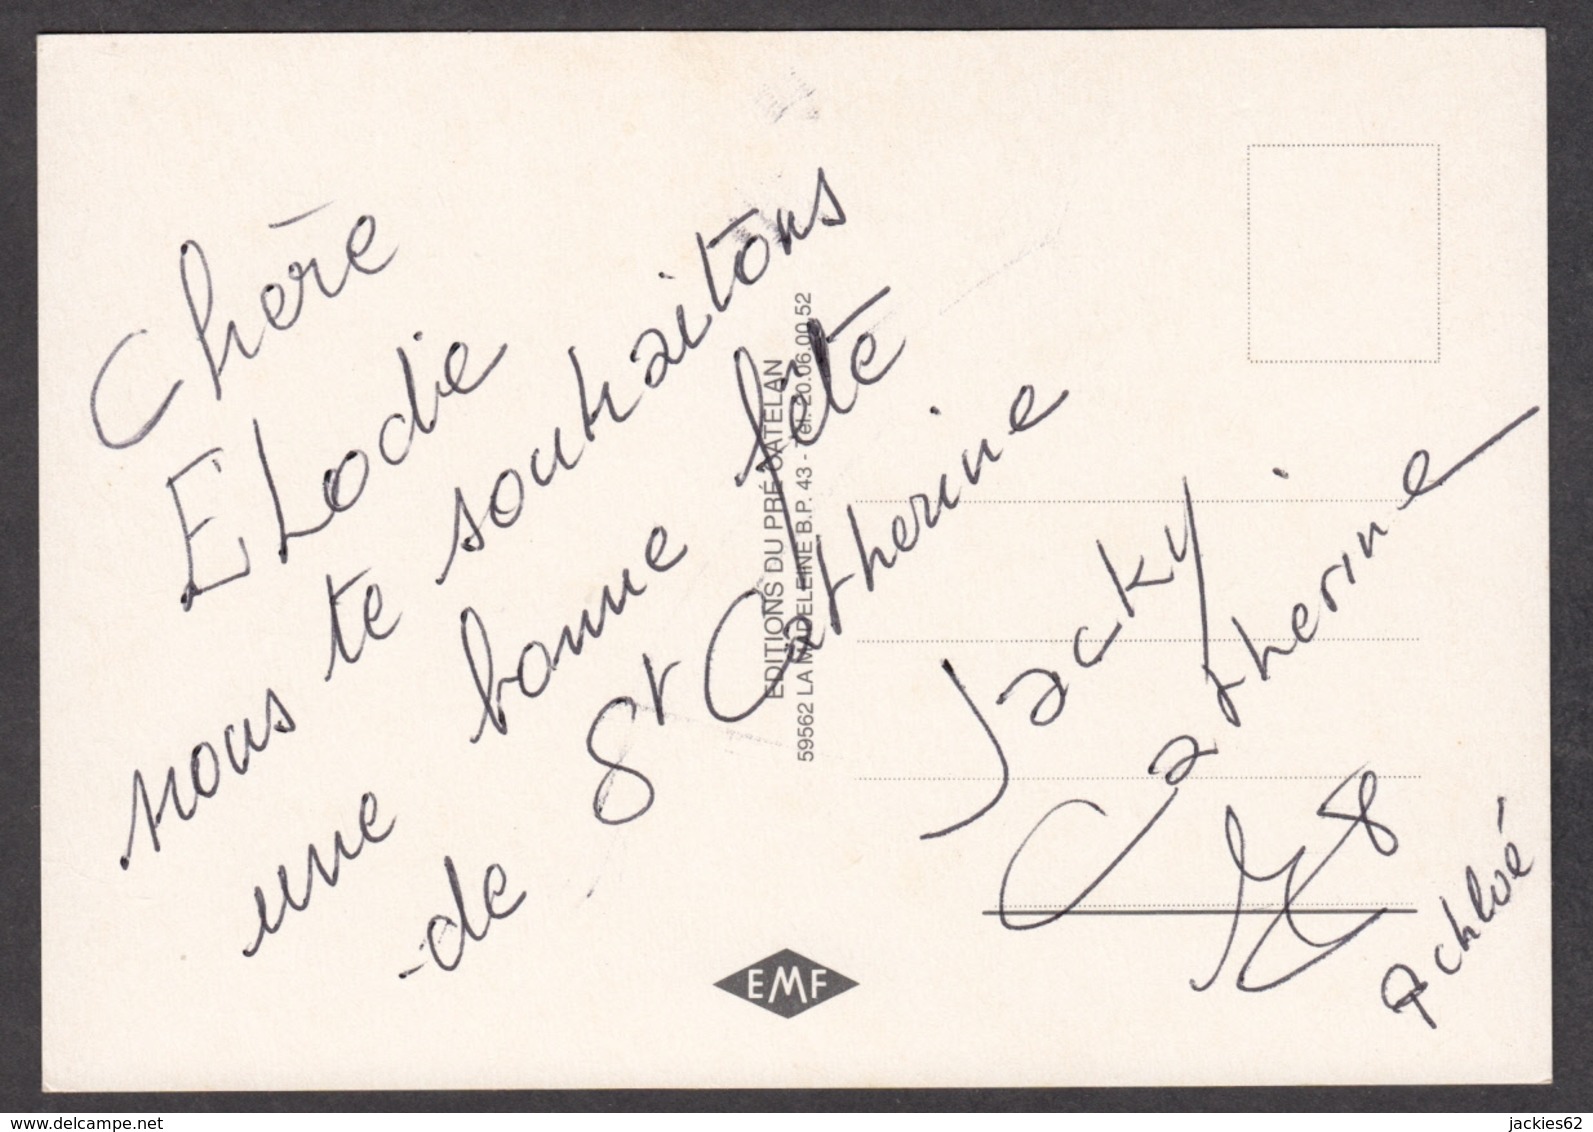 Chère
Elodie
nous te souhaitons
une bonne fête
de St Catherine
Jacky
Catherine
chloé
EDITIONS DU PRÉ CATELAN
59562 LA MADELEINE B.P. 43 - Tél. 20.06.00.52
EMF
www.delcampe.net
jackies62